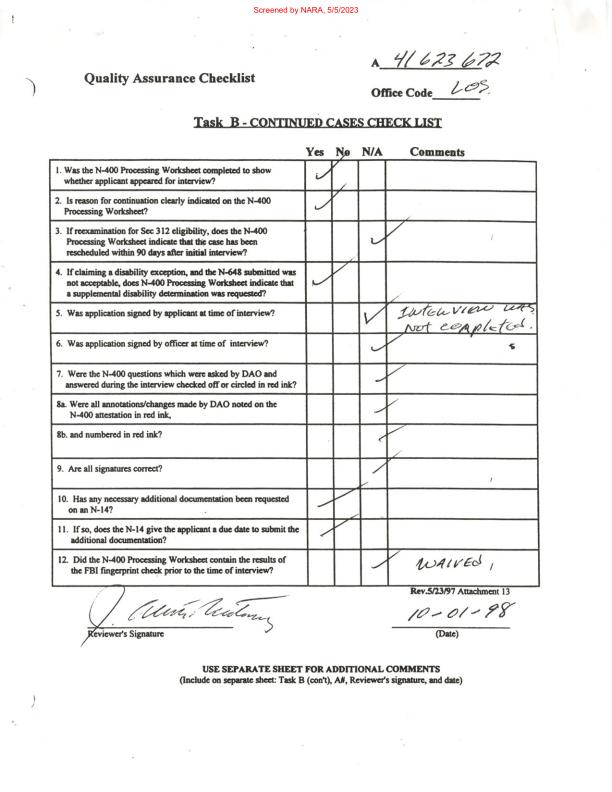 Screened by NARA, 5/5/2023
A 41 623 672
Quality Assurance Checklist
Office Code LOS.
Task B - CONTINUED CASES CHECK LIST
Yes No N/A Comments
1. Was the N-400 Processing Worksheet completed to show
whether applicant appeared for interview?
2. Is reason for continuation clearly indicated on the N-400
Processing Worksheet?
3. If reexamination for Sec 312 eligibility, does the N-400
Processing Worksheet indicate that the case has been
rescheduled within 90 days after initial interview?
4. If claiming a disability exception, and the N-648 submitted was
not acceptable, does N-400 Processing Worksheet indicate that
a supplemental disability determination was requested?
5. Was application signed by applicant at time of interview?
Interview was
not completed.
6. Was application signed by officer at time of interview?
7. Were the N-400 questions which were asked by DAO and
answered during the interview checked off or circled in red ink?
8a. Were all annotations/changes made by DAO noted on the
N-400 attestation in red ink,
8b. and numbered in red ink?
9. Are all signatures correct?
10. Has any necessary additional documentation been requested
on an N-14?
11. If so, does the N-14 give the applicant a due date to submit the
additional documentation?
12. Did the N-400 Processing Worksheet contain the results of
the FBI fingerprint check prior to the time of interview?
WAIVED,
Rev.5/23/97 Attachment 13
10-01-98
Reviewer's Signature
(Date)
USE SEPARATE SHEET FOR ADDITIONAL COMMENTS
(Include on separate sheet: Task B (con't), A#, Reviewer's signature, and date)